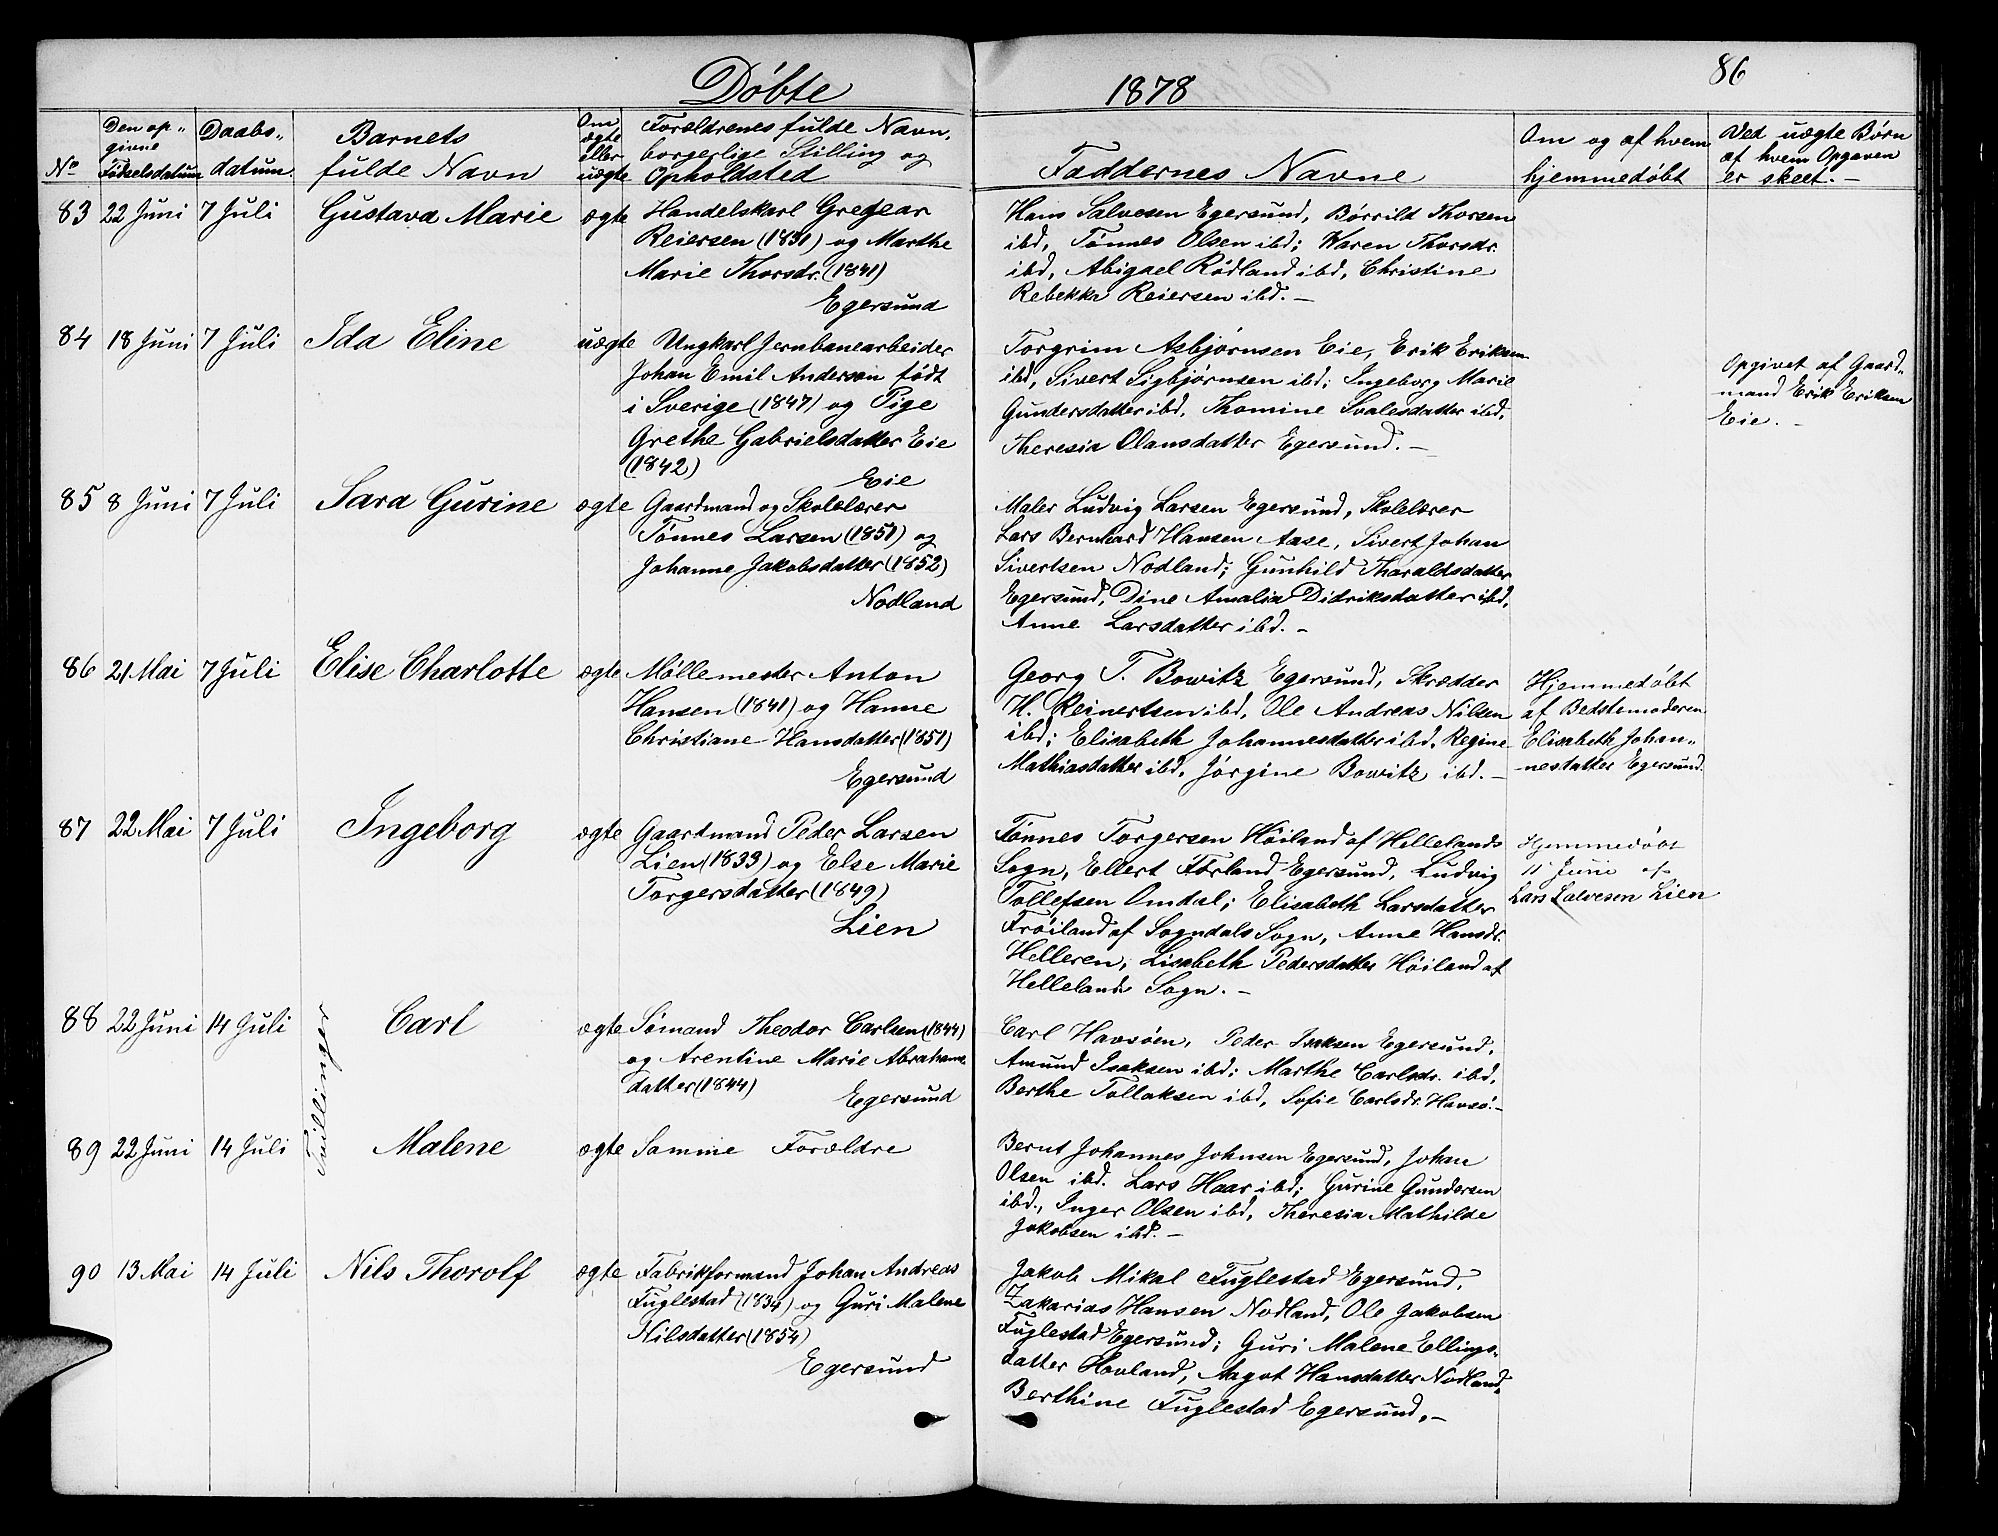 Døbte 1878
86
No
Den op-
givne
Fødselsdatum
Daabs-
datum
Barnets
fulde Navn
Om
ægte
eller
uægte
Forældrenes fulde Navn,
borgerlige Stilling og
Opholdsted
Faddernes Navne
Om og af hvem
hjemmedøbt
Ved uægte Børn
af hvem Opgaven
er skeet. —
83 22 Juni 7 Juli Gustava Marie ægte
Handelskarl Gregear
Reiersen (1831) og Marthe
Marie Thorsdr. (1841)
Egersund
Hans Salvesen Egersund, Børrild Thorsen
ibd, Tønnes Olsen ibd; Karen Thorsdr.
ibd, Abigael Rødland ibd, Christine
Rebekka Reiersen ibd. —
84 18 Juni 7 Juli Ida Eline uægte
Ungkarl Jernbanearbeider
Johan Emil Anderson født
i Sverige (1847) og Pige
Grethe Gabrielsdatter Eie
(1842)
Eie
Torgrim Asbjørnsen Eie, Erik Eriksen
ibd, Sivert Sigbjørnsen ibd; Ingeborg Marie
Gundersdatter ibd, Thomine Svalesdatter ibd,
Theresia Olausdatter Egersund. —
Opgivet af Gaard-
mand Erik Eriksen
Eie. —
85 8 Juni 7 Juli Sara Gurine ægte
Gaardmand og Skolelærer
Tønnes Larsen (1851) og
Johanne Jakobsdatter (1852)
Nodland
Maler Ludvig Larsen Egersund, Skolelærer
Lars Bernhard Hansen Aase, Sivert Johan
Sivertsen Nodland; Gunhild Tharaldsdatter
Egersund, Dine Amalia Didriksdatter ibd,
Anne Larsdatter ibd. —
86 21 Mai 7 Juli Elise Charlotte ægte
Møllemester Anton
Hansen (1841) og Hanne
Christiane Hansdatter (1851)
Egersund
Georg T. Bowitz Egersund, Skrædder
H. Reinertsen ibd, Ole Andreas Nilsen
ibd; Elisabeth Johannesdatter ibd, Regine
Mathiasdatter ibd, Jørgine Bowitz ibd. —
Hjemmedøbt
af Bedstemoderen
Elisabeth Johan-
nesdatter Egersund.
87 22 Mai 7 Juli Ingeborg ægte
Gaardmand Peder Larsen
Lien (1833) og Else Marie
Torgersdatter (1849)
Lien
Tønnes Torgersen Høiland af Hellelands
Sogn, Ellert Førland Egersund, Ludvig
Tollefsen Omdal; Elisabeth Larsdatter
Frøiland af Sogndals Sogn, Anne Hansdr.
Helleren, Lisabeth Pedersdatter Høiland af
Hellelands Sogn. —
Hjemmedøbt
11 Juni af
Lars Salvesen Lien
Tvillinger
88 22 Juni 14 Juli Carl ægte
Sømand Theodor Carlsen (1844)
og Arentine Marie Abrahams
datter (1844)
Egersund
Carl Havsøen, Peder Isaksen Egersund,
Amund Isaksen ibd; Marthe Carlsdr. ibd,
Berthe Tollaksen ibd, Sofie Carlsdr. Havsø. —
89 22 Juni 14 Juli Malene ægte
Samme Forældre
Bernt Johannes Johnsen Egersund, Johan
Olsen ibd. Lars Haar ibd; Gurine Gundersen
ibd., Inger Olsen ibd, Theresia Mathilde
Jakobsen ibd. —
90 13 Mai 14 Juli Nils Thorolf ægte
Fabrikformand Johan Andreas
Fuglestad (1834) og Guri Malene
Nilsdatter (1854)
Egersund
Jakob Mikal Fuglestad Egersund,
Zakarias Hansen Nodland, Ole Jakobsen
Fuglestad Egersund; Guri Malene Ellings-
datter Hovland, Aagot Hansdatter Nodland,
Berthine Fuglestad Egersund. —